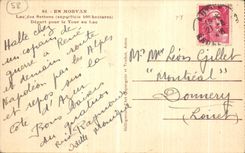 58
84 - EN MORVAN
Lac des Settons (superficie 400 hectares)
Départ pour le Tour au Lac
Halte chez
un copain de
guerre à René
et demain route
Napoléon par les Alpes
et repos sur la
Côte d'Azur
Bons baisers
Raymonde
Mr Mme Léon Gillet
"Montréal"
Donnery
(Loiret)